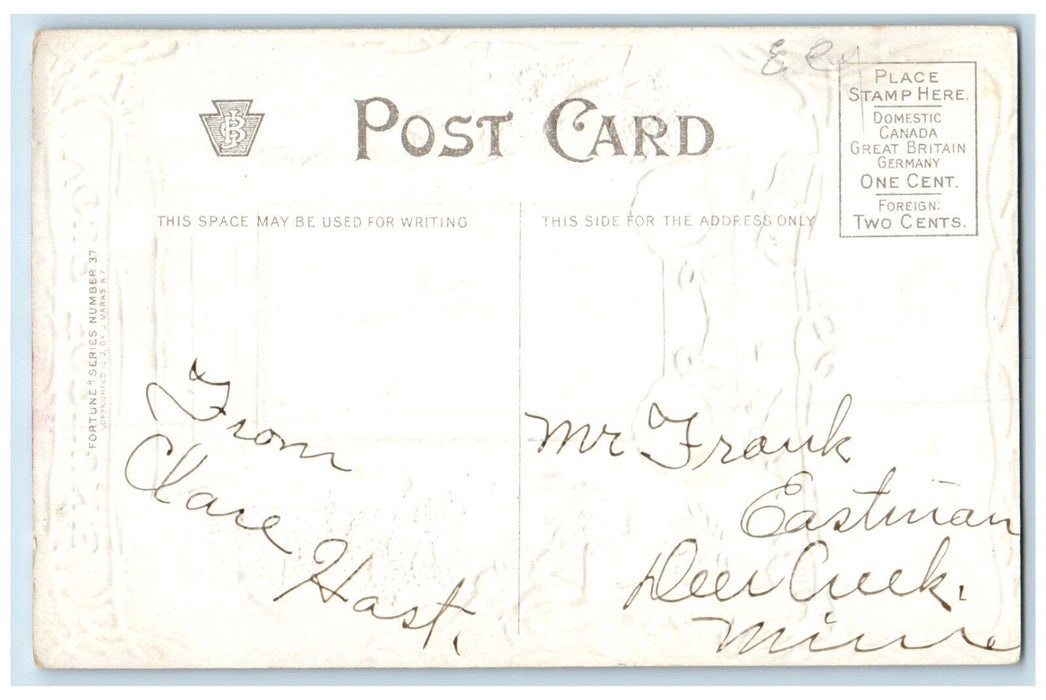 POST CARD
PLACE
STAMP HERE.
DOMESTIC
CANADA
GREAT BRITAIN
GERMANY
ONE CENT.
FOREIGN:
TWO CENTS.
THIS SPACE MAY BE USED FOR WRITING
THIS SIDE FOR THE ADDRESS ONLY
"FORTUNE" SERIES NUMBER 37
BY J. MARKS N.Y.
From
Clare
Hast.
Mr Frank
Eastman
Deer Creek.
Minn